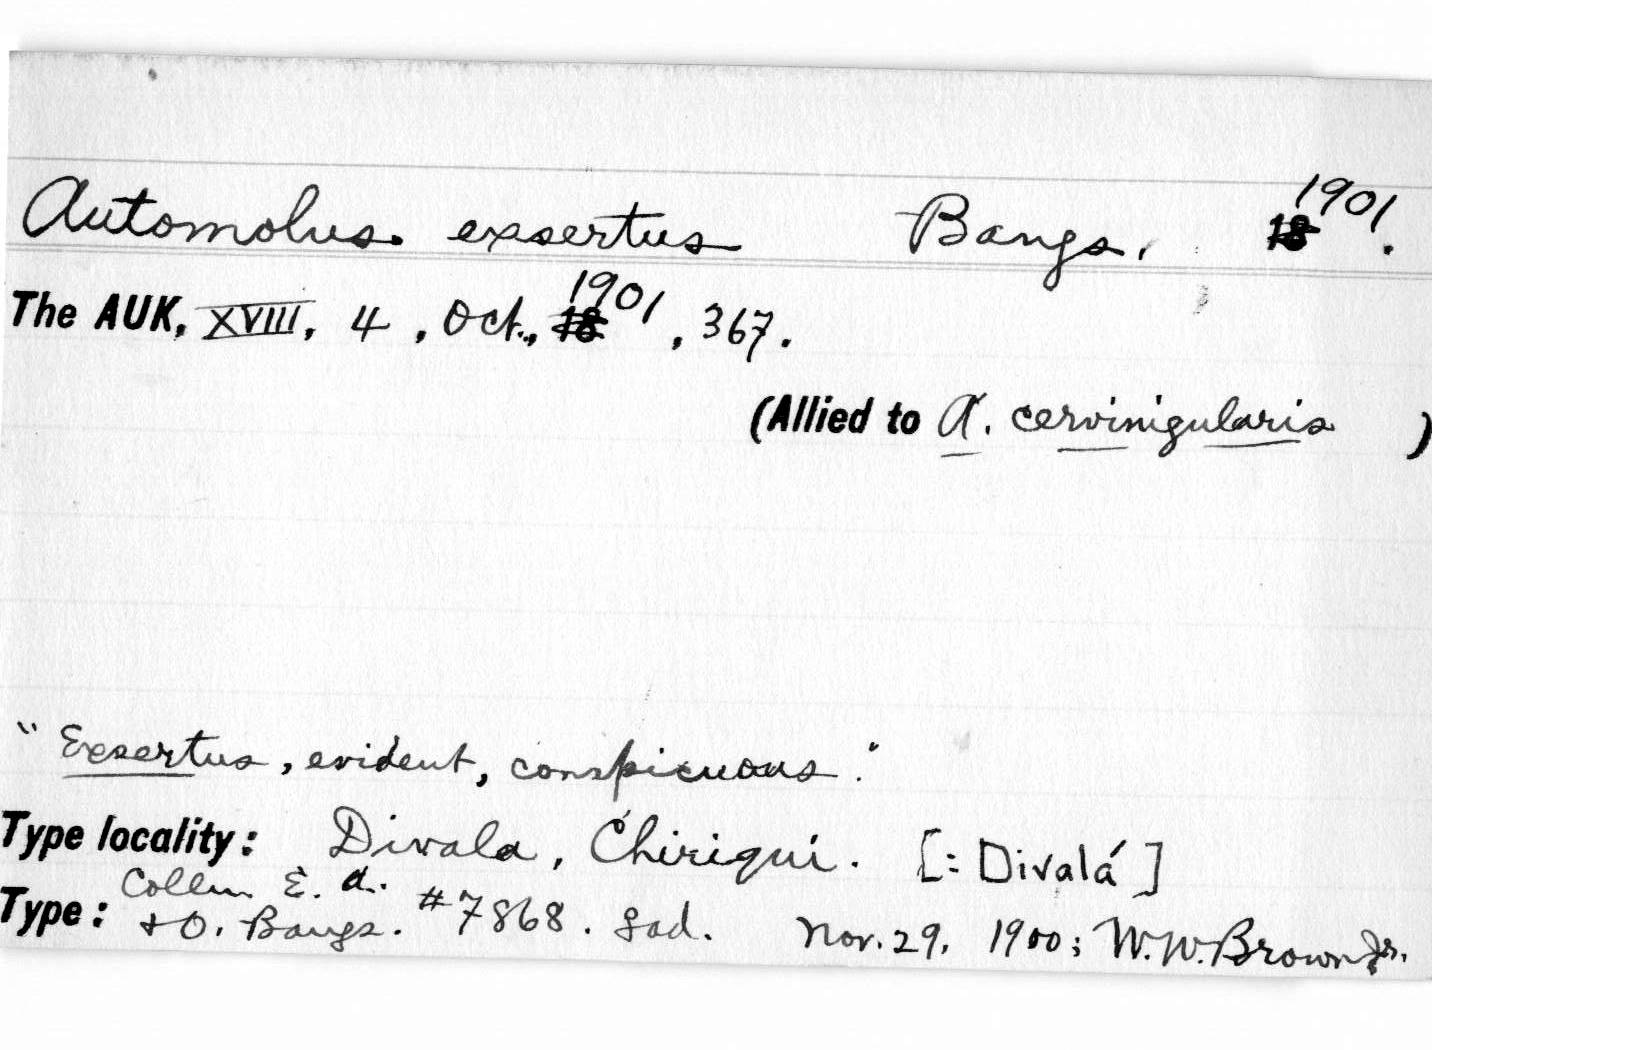 Automolus exsertus Bangs, 1901.
The AUK, XVIII, 4, Oct., 1901, 367.
(Allied to A. cervinigularis )
"Exsertus, evident, conspicuous."
Type locality: Divala, Chiriqui. [= Divalá]
Type: Colln. E. A. + O. Bangs. #7868. ad. Nov. 29, 1900; W.W. Brown Jr.